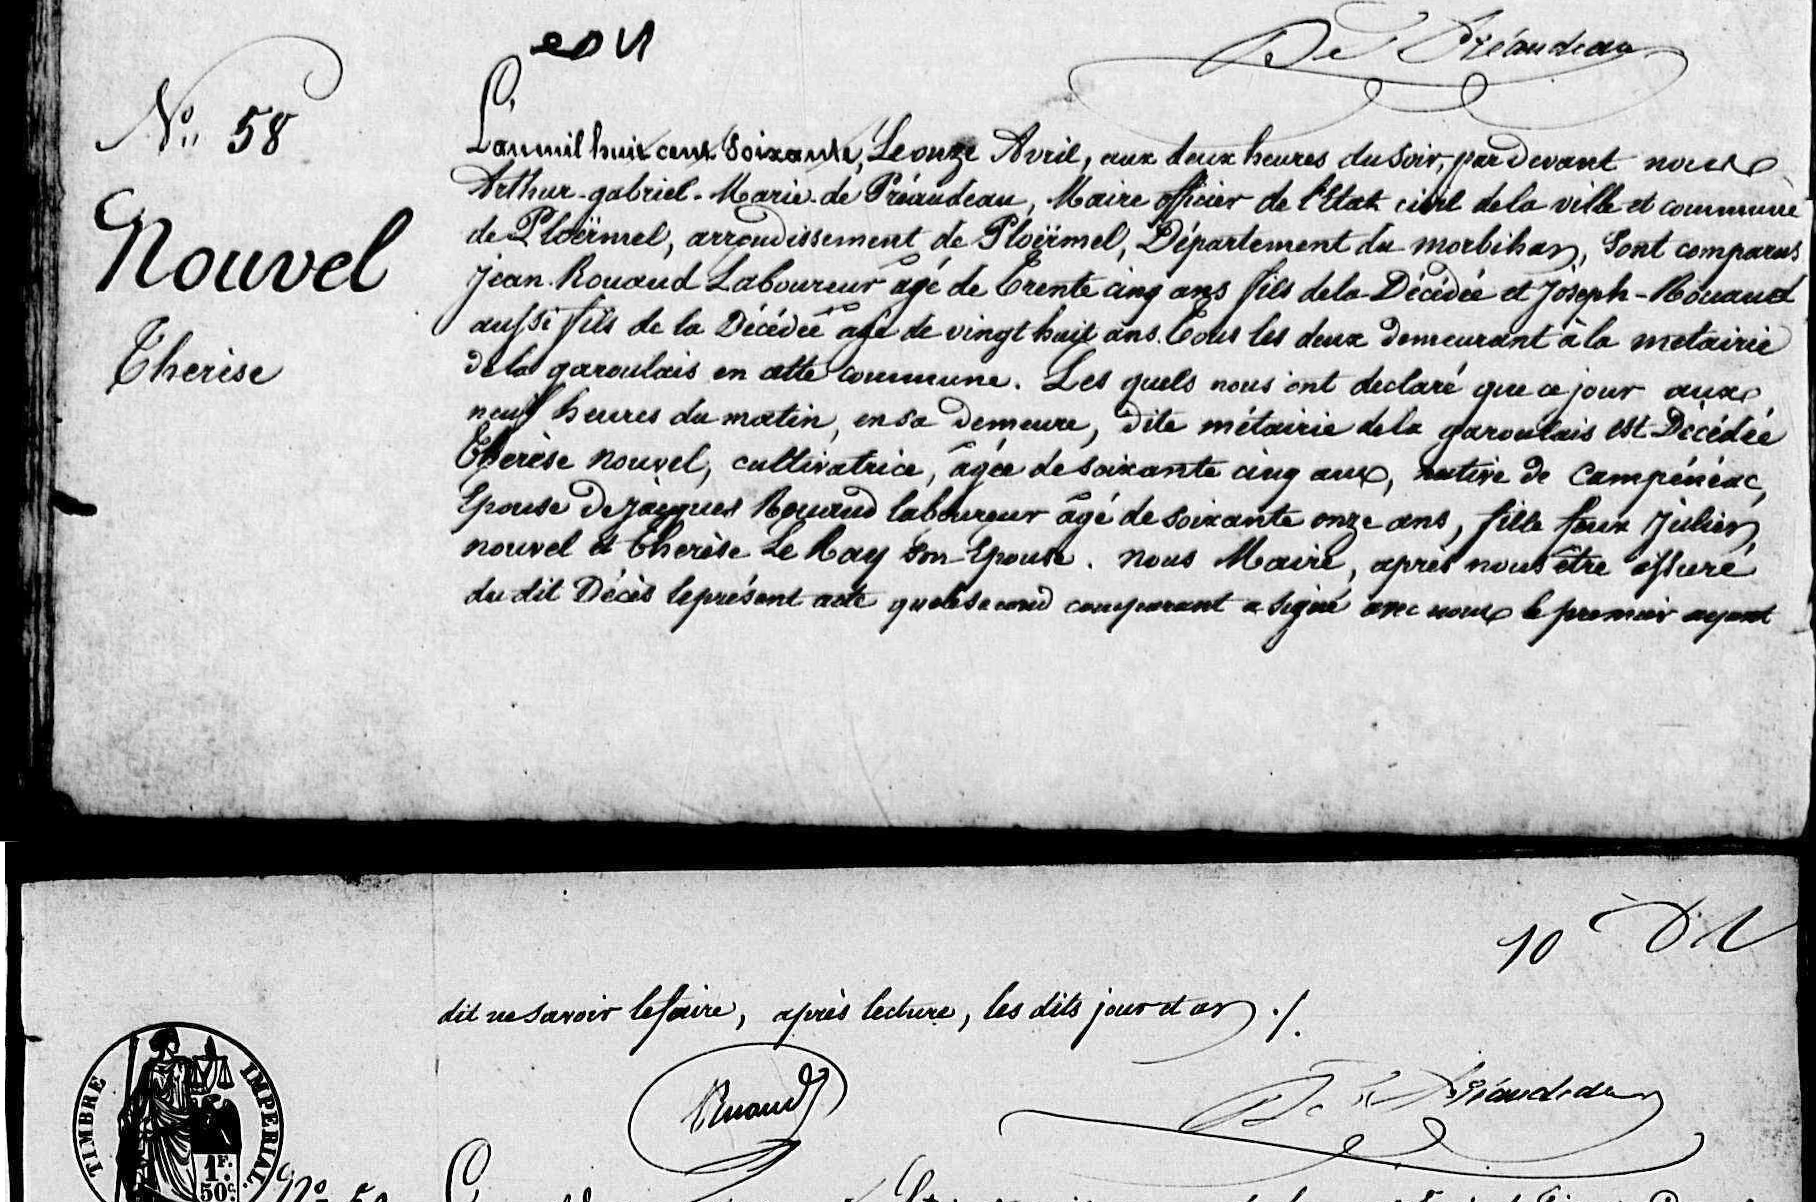 De Préaudeau
Nº 58
Nouvel
Therèse
L'an mil huit cent soixante, Le onze Avril, aux deux heures du soir, par devant nous
Arthur-gabriel-Marie-de Préaudeau, Maire officier de l'Etat civil de la ville et commune
de Ploërmel, arrondissement de Ploërmel, Département du morbihan, Sont comparus
Jean Rouaud Laboureur âgé de Trente cinq ans fils de la Décédée et Joseph-Rouaud
aussi fils de la Décédée âgé de vingt huit ans. Tous les deux demeurant à la métairie
de la garoulais en cette commune. Les quels nous ont declaré que ce jour aux
neuf heures du matin, en sa demeure, dite métairie de la garoulais est Décédée
Therèse Nouvel, cultivatrice, âgée de soixante cinq ans, native de Campénéac,
Epouse de Jacques Rouaud laboureur âgé de soixante onze ans, fille feux Julien
nouvel et Therèse Le Ray son Epouse. Nous Maire, après nous être assuré
du dit Décès le présent acte que le second comparant a signé avec nous le premier ayant
10
dit ne savoir le faire, après lecture, les dits jour et an ./.
Ruaud
De Préaudeau
TIMBRE IMPERIAL
1F.
50c.
Nº 59